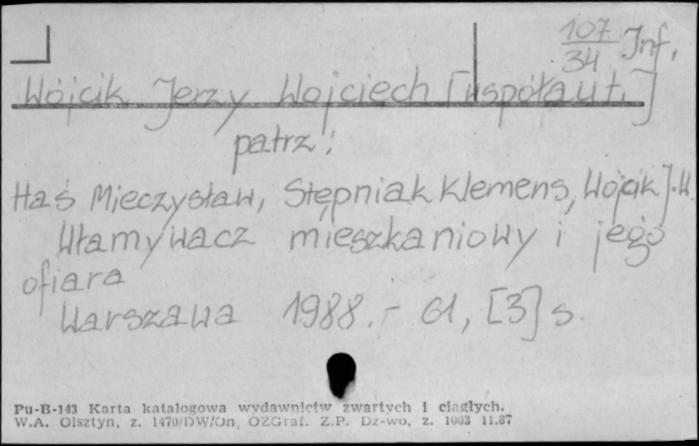 107 Inf.
34
Wójcik Jerzy Wojciech [współaut.]
patrz:
Haś Mieczysław, Stępniak Klemens, Wójcik J.W.
Włamywacz mieszkaniowy i jego
ofiara
Warszawa 1988.- 61, [3] s.
Pu-B-143 Karta katalogowa wydawnictw zwartych i ciągłych.
W.A. Olsztyn, z. 1470/DW/On, OZGraf. Z.P. Dz-wo, z. 1003 11.87